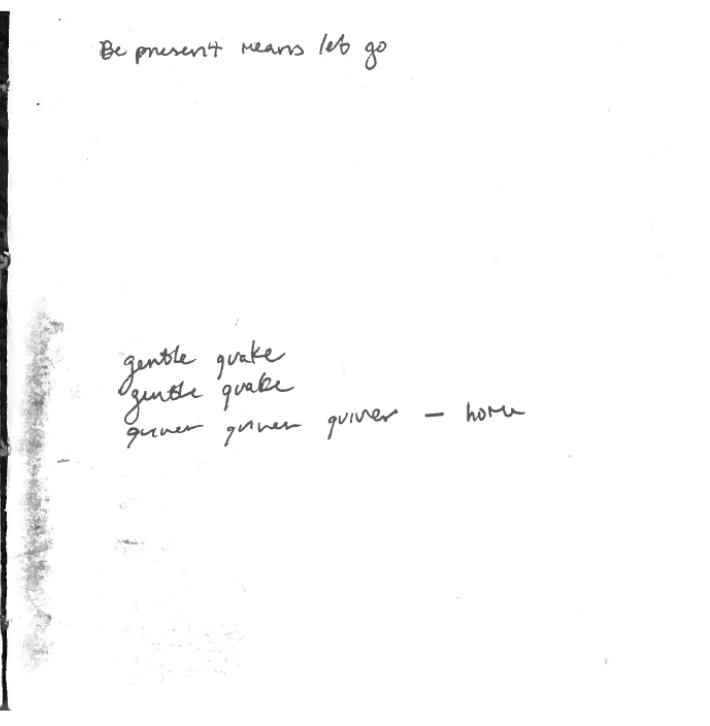 Be present means let go
gentle quake
gentle quake
quiver quiver quiver — home